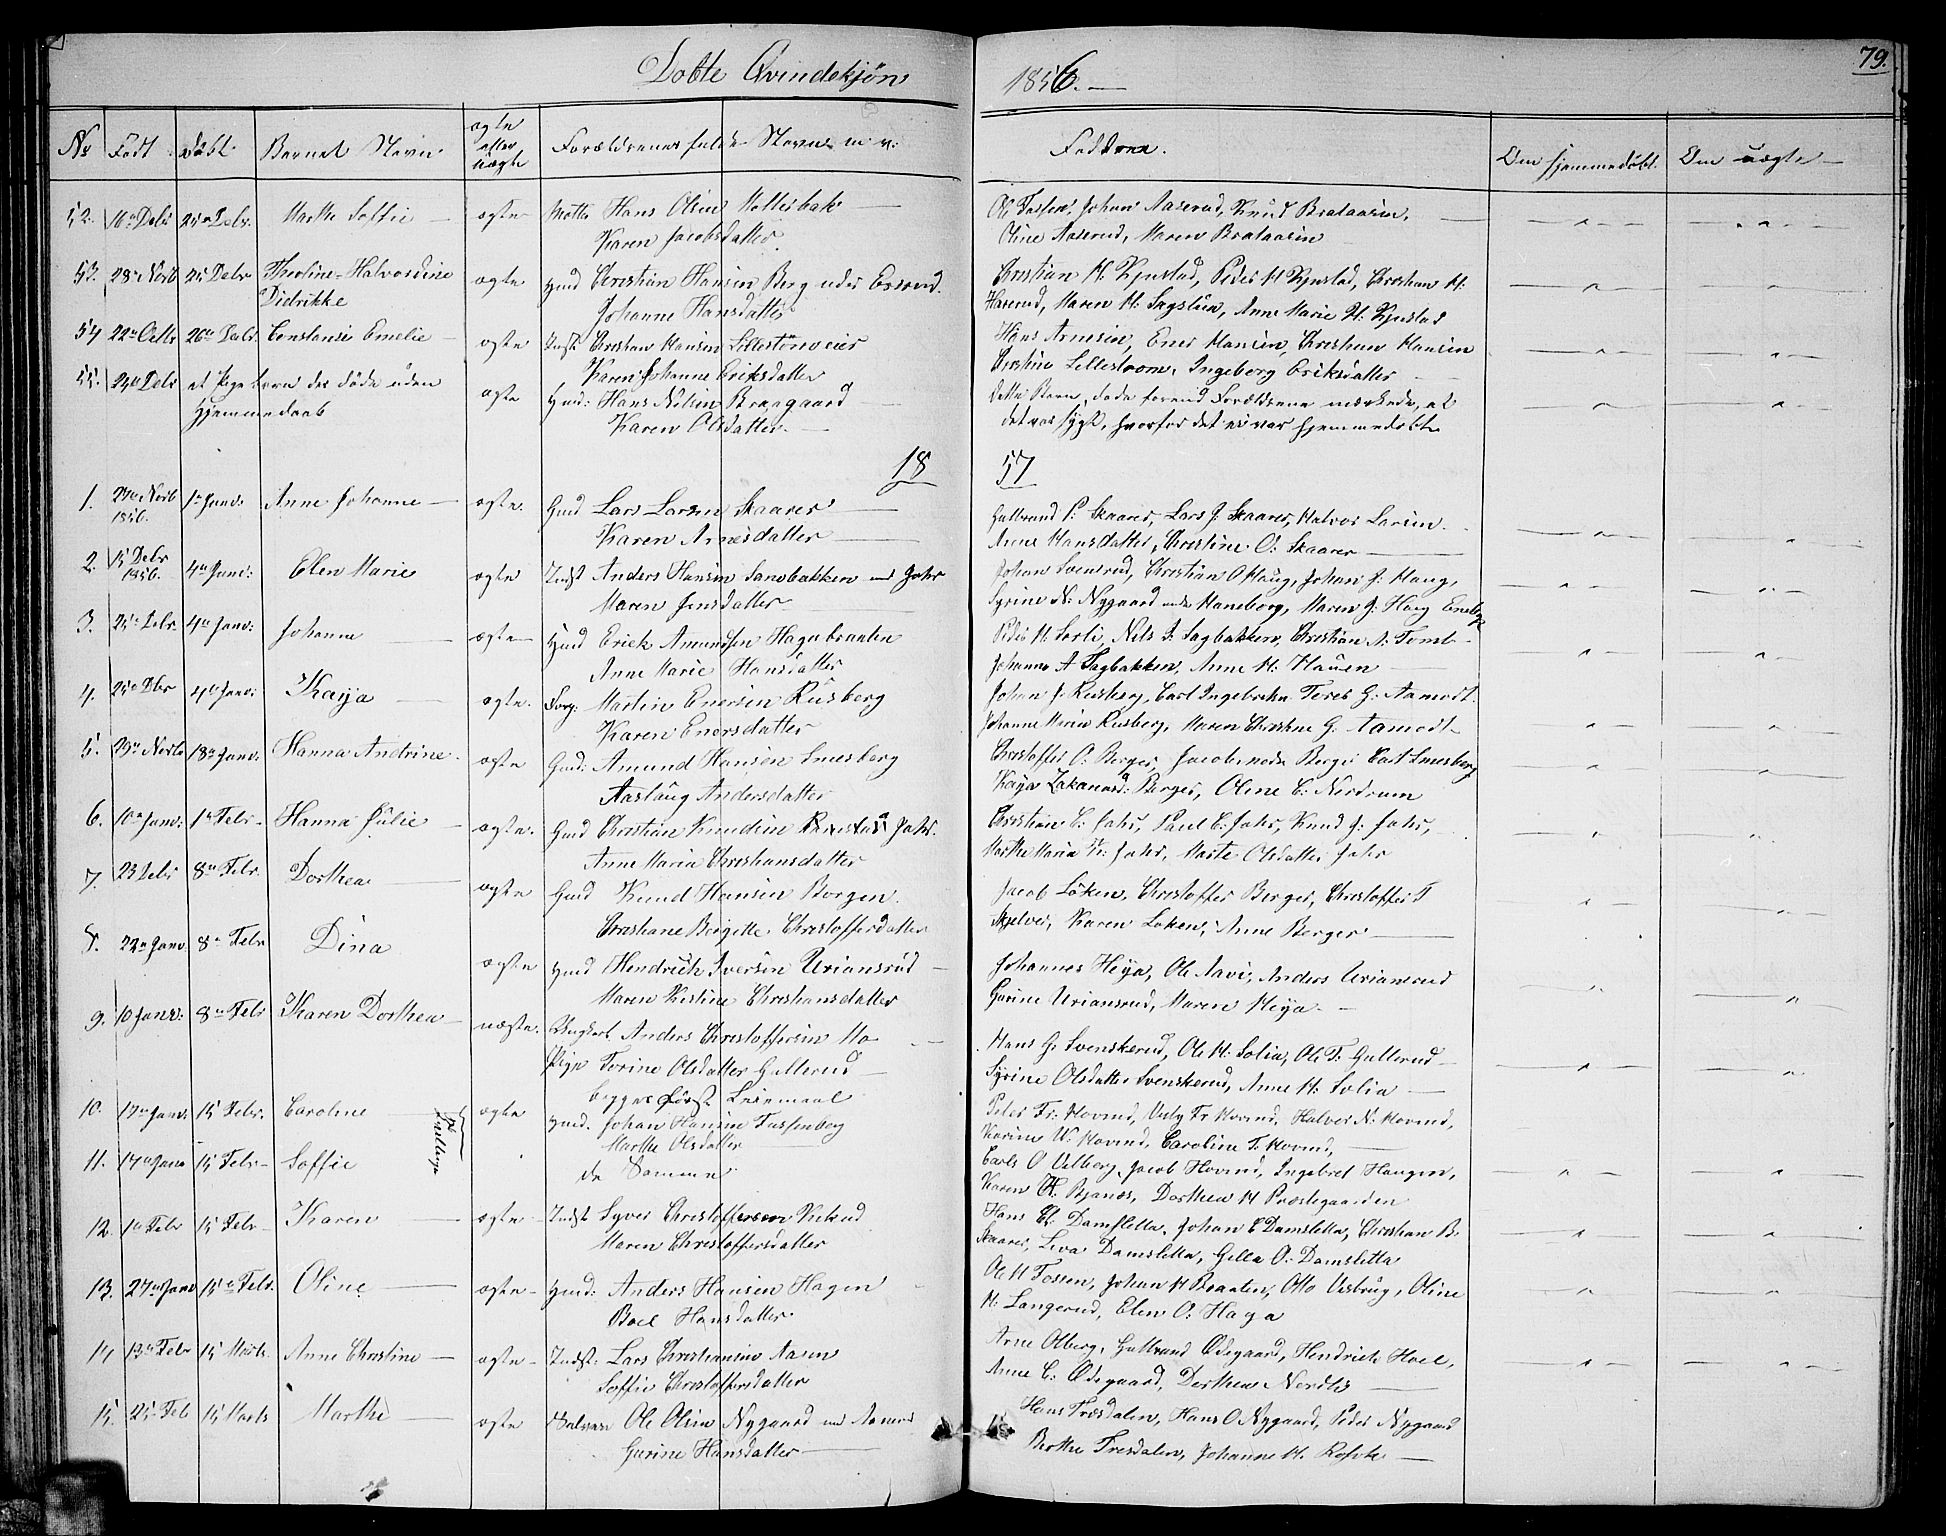 Døbte Qvindekjøn
1856.
79.
No Født Døbt Barnets Navn ægte eller uægte Forældrenes fulde Navn m. v. Faddere. Om hjemmedøbt. Om uægte
52. 16de Debr 25de Debr. Marthe Soffie ægte Hans Olsen Møllerbak
Karen Jacobsdatter
Ole Johan Aaserud, Knud Brataasen,
Oline Aaserud, Maren Brataasen
53. 28de Novb 25 Debr Theoline Halvordine ægte Gmd Christian Hansen Berg
Didrikke
Johanne Hansdatter
Christian H. Kjustad, Peder H Kjustad, Christian H.
Maren H. Anne Marie H. Kjustad
54 22de Octbr 26de Debr. Constanse Emelie ægte Indst Christian Hansen Lillestrømeier
Karen Johanne Eriksdatter
Hans Arnesen, Ener Hansen, Christian Hansen
Christine Lillestrøm, Ingeborg Eriksdatter
55. Debr et Pige barn der døde uden ægte Gmd: Hans Nilsen Braagaard
Hjemmedaab
Karen Olsdatter
Dette Barn døde forend Forældrene mærkede, at
det var sygt, hvorfor det ei var hjemmedøbt
18 57
1. Novb 1de Janv: Anne Johanne ægte. Gmd Lars Larsen Skaarer
1856.
Karen Arnesdatter
Gulbrand P. Skaarer, Lars J. Skaarer, Halvor Larsen.
Anne Hansdatter, Christine O. Skaarer
2. 15 Debr 4de Janv: Elen Marie ægte Indst Anders Hansen Sandbakken
1856.
Maren Jensdatter
Johan Svensrud, Christian O Haug, Johan J. Haug,
Syrine N. Nygaard under Haneborg, Maren J. Haug
3. 25de Debr 4de Janv: Johanne ægte Gmd Erick Amundsen Hagabraaten
Anne Marie Hansdatter
Peder H Sørli, Nils J. Sagbakken, Christian A. Tomt
Johanne A Sagbakken, Anne H. Hauen
4. 25de Dbr 4de Janv: Kaija ægte. Forp: Martin Enersen Rusberg
Karen Enersdatter
Johan J. Rusberg, Carl Ingebretsen G. Aamodt.
Johanne Maria Rusberg, Maren Christine G. Aamodt
5. 29de Novbr 18de Janv. Hanna Andrine. ægte Gmd: Amund Hansen Smesberg
Aaslaug Andersdatter
Christoffer O. Berger, Berger Carl Smesberg
Kaija Zakariasd: Berger, Oline C. Nordrum
6. 10de Janv: 1de Febr. Hanna Julie ægte. Gmd Christian Knudsen Jahr.
Anne Maria Christiansdatter
Christian C. Jahr, Paul C. Jahr, Knud J. Jahr,
Marthe Maria K. Jahr, Marte Olsdatter Jahr
7. 23 Debr 8de Febr. Dorthea ægte Gmd Knud Hansen Borgen.
Christiane Birgitte Christoffersdatter
Jacob Løken, Christoffer Berger, Christoffer T
Skjelver, Karen Løken, Anne Berger
8. 22de Janv. 8de Febr Dina ægte Gmd Hendrich Iversen Uriansrud
Maren Kirstine Christiansdatter
Johannes Heija, Ole Anders Uriansrud
Gurine Uriansrud, Maren Heija.
9. 10 Janv: 8de Febr Karen Dorthea uægte. Ungkarl Anders Christoffersen Mo
Pige Torine Olsdatter Gullerud
begges første Leiermaal
Hans G. Svenskerud, Ole H. Solia, Ole T. Gullerud
Syrine Olsdatter Svenskerud, Anne H. Solia
10. 17de Janv. 15 Febr. Caroline Tvillinger ægte Gmd. Johan Hansen
Marthe Olsdatter
Peder Fr. Hovind, Fr Hovind, Halvor N. Hovind,
Karine W. Hovind, Caroline T. Hovind,
11. 17de Janv 15 Febr Soffie de Samme
Carls O Velberg, Jacob Hovind, Ingebret Haugen,
Karen K. Bjanæs, Dorthea H Præstegaarden
12. 1de Febr 15 Febr Karen ægte Indst Syver Christoffersen
Maren Christoffersdatter
Hans C. Damsletta, Johan C Damsletta, Christian B.
Skaarer, Damsletta, O. Damsletta
13. 27de Janv 15de Febr. Oline ægte Gmd: Anders Hansen Hagen
Boel Hansdatter
Ole H Fossen, Johan H Braaten, Otto Oline
H. Langerud, Elen O. Haga
14 13de Febr 15 Marts Anne Christine ægte Indst: Lars Christiansen Aasen
Soffie Christoffersdatter
Arne Olberg, Gulbrand Ødegaard, Hendrich Hoel,
Anne C. Ødegaard, Dorthea Nordli
15. 25de Feb 15 Marts Marthe ægte Ole Olsen Nygaard
Gurine Hansdatter
Hans Træsdalen, Hans O Nygaard, Peder Nygaard
Berthe Tresdalen, Johanne H.